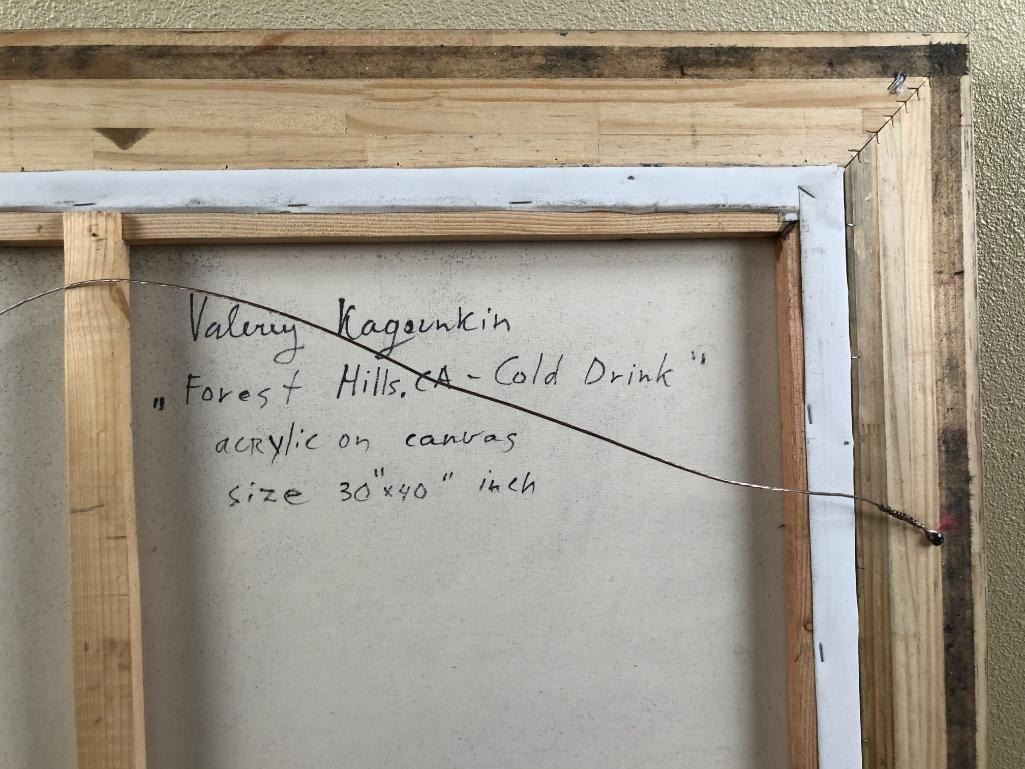 Valeriy Kagounkin
„Forest Hills. CA - Cold Drink"
acrylic on canvas
size 30"x40" inch